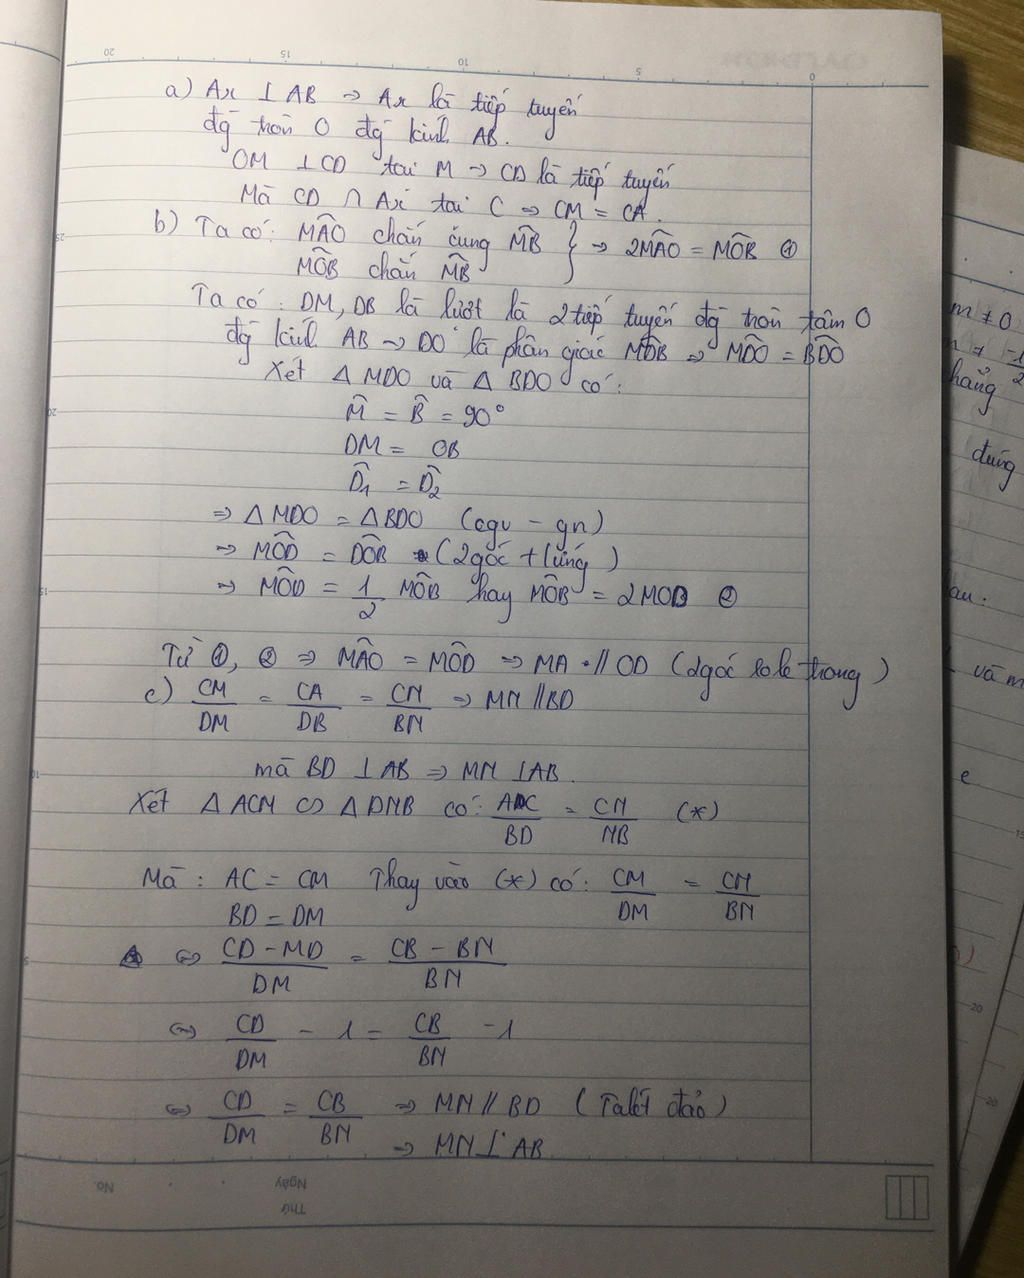 a) Ax ⊥ AB → Ax là tiếp tuyến
đg tròn O đg kính AB.
OM ⊥ CD tại M → CD là tiếp tuyến
Mà CD ∩ Ax tại C ⇒ CM = CA.
b) Ta có: MÂO chắn cung MB } → 2MÂO = MÔB ①
MÔB chắn MB
Ta có: DM, DB là lượt là 2 tiếp tuyến đg tròn tâm O
đg kính AB → DO là phân giác MDB ⇒ MDO = BDO
Xét Δ MDO và Δ BDO có:
M̂ = B̂ = 90°
DM = OB
D̂₁ = D̂₂
⇒ Δ MDO = Δ BDO (cgv - gn)
→ MÔD = DÔB (2 góc t ứng)
→ MÔD = 1/2 MÔB hay MÔB = 2MOD ②
Từ ①, ② ⇒ MÂO = MÔD ⇒ MA // OD (2góc so le trong)
c) CM/DM = CA/DB = CN/BN ⇒ MN // BD
mà BD ⊥ AB ⇒ MN ⊥ AB.
Xét Δ ACN ∽ Δ DNB có: AC/BD = CN/NB (*)
Mà: AC = CM Thay vào (*) có: CM/DM = CN/BN
BD = DM
⇔ (CD - MD)/DM = (CB - BN)/BN
⇔ CD/DM - 1 = CB/BN - 1
⇔ CD/DM = CB/BN ⇒ MN // BD (Talét đảo)
⇒ MN ⊥ AB
No.
Ngày
Thứ
20
15
10
5
0
25
20
15
10
5
m ≠ 0
-1/2
hẳng
đúng
au.
và m
e
15
20
20